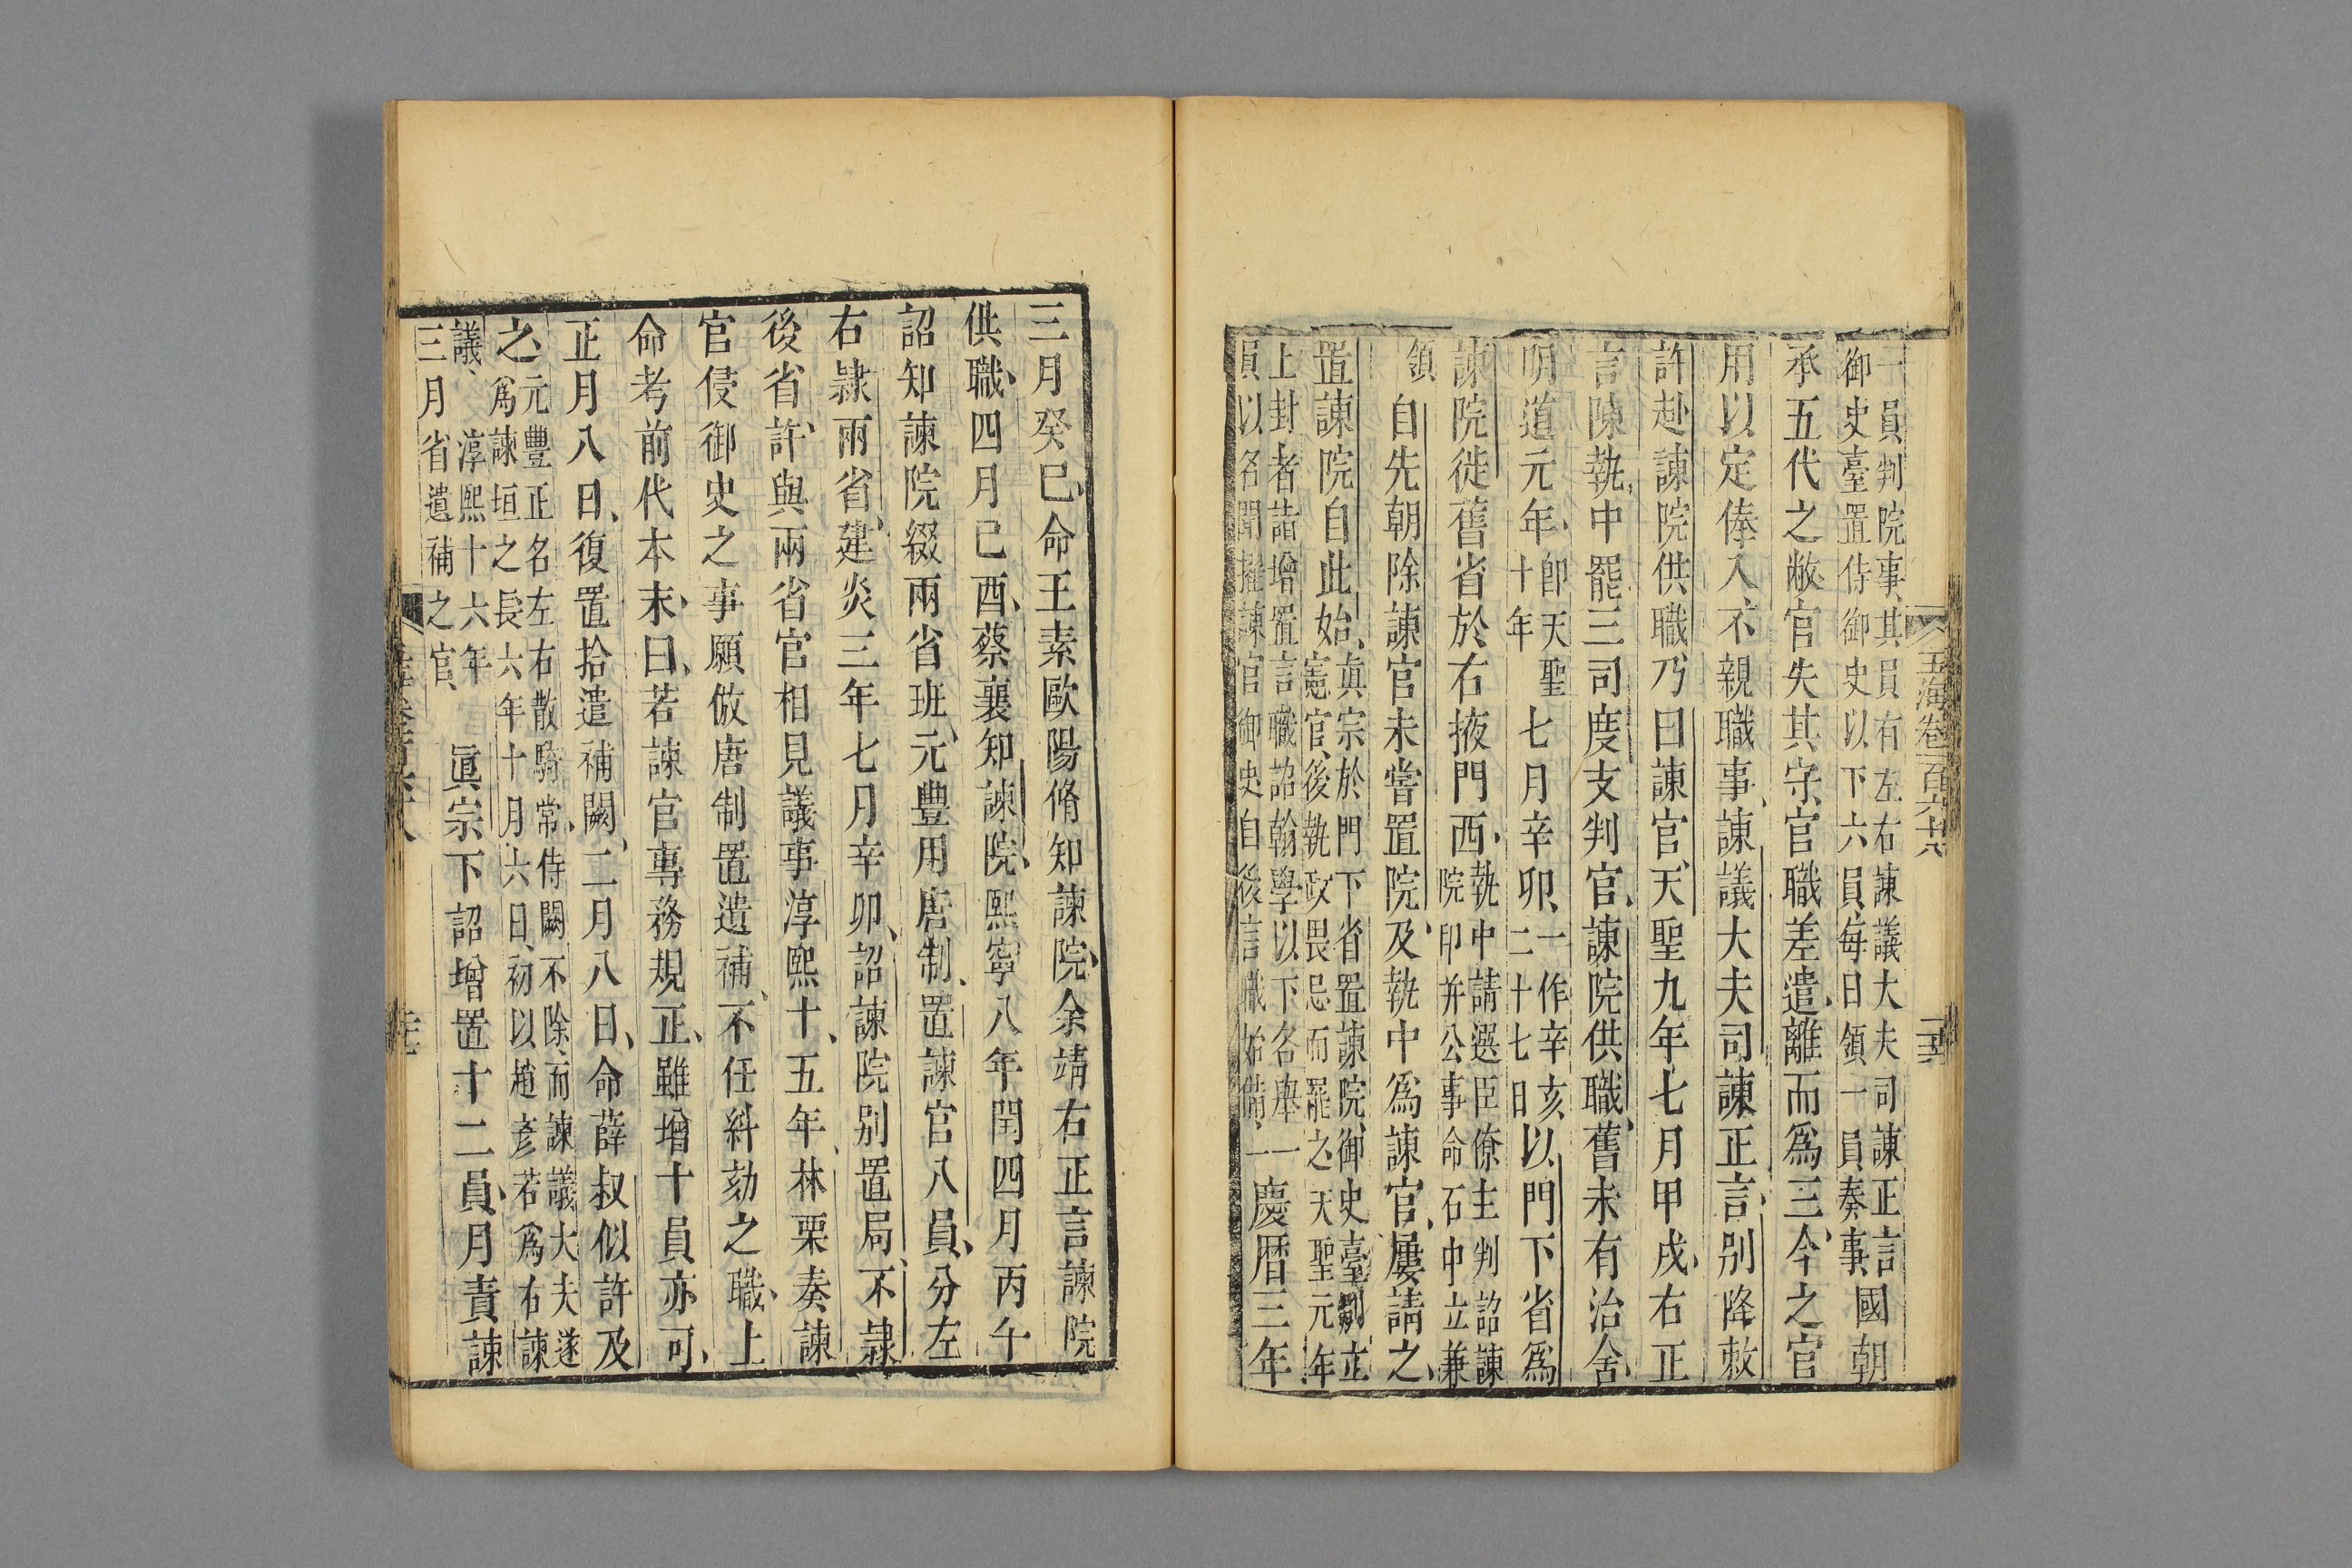 玉海卷一百六十八
一員判院事、其員有左右諫議大夫司諫正言
御史臺置侍御史以下六員、每日領一員奏事、國朝
承五代之敝、官失其守、官職差遣、離而爲三、今之官
用以定俸入、不親職事、諫議大夫司諫正言、別降敕
許赴諫院供職、乃曰諫官、天聖九年七月甲戌、右正
言陳執中罷三司度支判官、諫院供職、舊未有治舍、
明道元年、卽天聖
十年七月辛卯、一作辛亥
二十七日以門下省爲
諫院徙舊省於右掖門西、執中請選臣僚主判詔諫
院印并公事命石中立兼
領自先朝除諫官未嘗置院、及執中爲諫官、屢請之、
置諫院自此始、真宗於門下省置諫院、御史臺剏立
憲官、後執政畏忌而罷之天聖元年
上封者請增置言職詔翰學以下各舉一
員以名聞擢諫官御史自後言職始備、慶曆三年
三月癸巳、命王素歐陽脩知諫院、余靖右正言諫院
供職、四月己酉、蔡襄知諫院、熙寧八年閏四月丙午
詔知諫院綴兩省班、元豐用唐制、置諫官八員、分左
右隷兩省、建炎三年七月辛卯、詔諫院别置局、不隷
後省、許與兩省官相見議事淳熙十五年、林栗奏諫
官侵御史之事願倣唐制置遺補、不任糾劾之職、上
命考前代本末、曰、若諫官專務規正、雖增十員亦可、
正月八日、復置拾遺補闕、二月八日、命薛叔似許及
之、元豐正名左右散騎常侍闕不除、而諫議大夫遂
爲諫垣之長六年十月六日、初以趙彦若爲右諫
議、淳熙十六年
三月省遺補之官、眞宗下詔增置十二員、月責諫